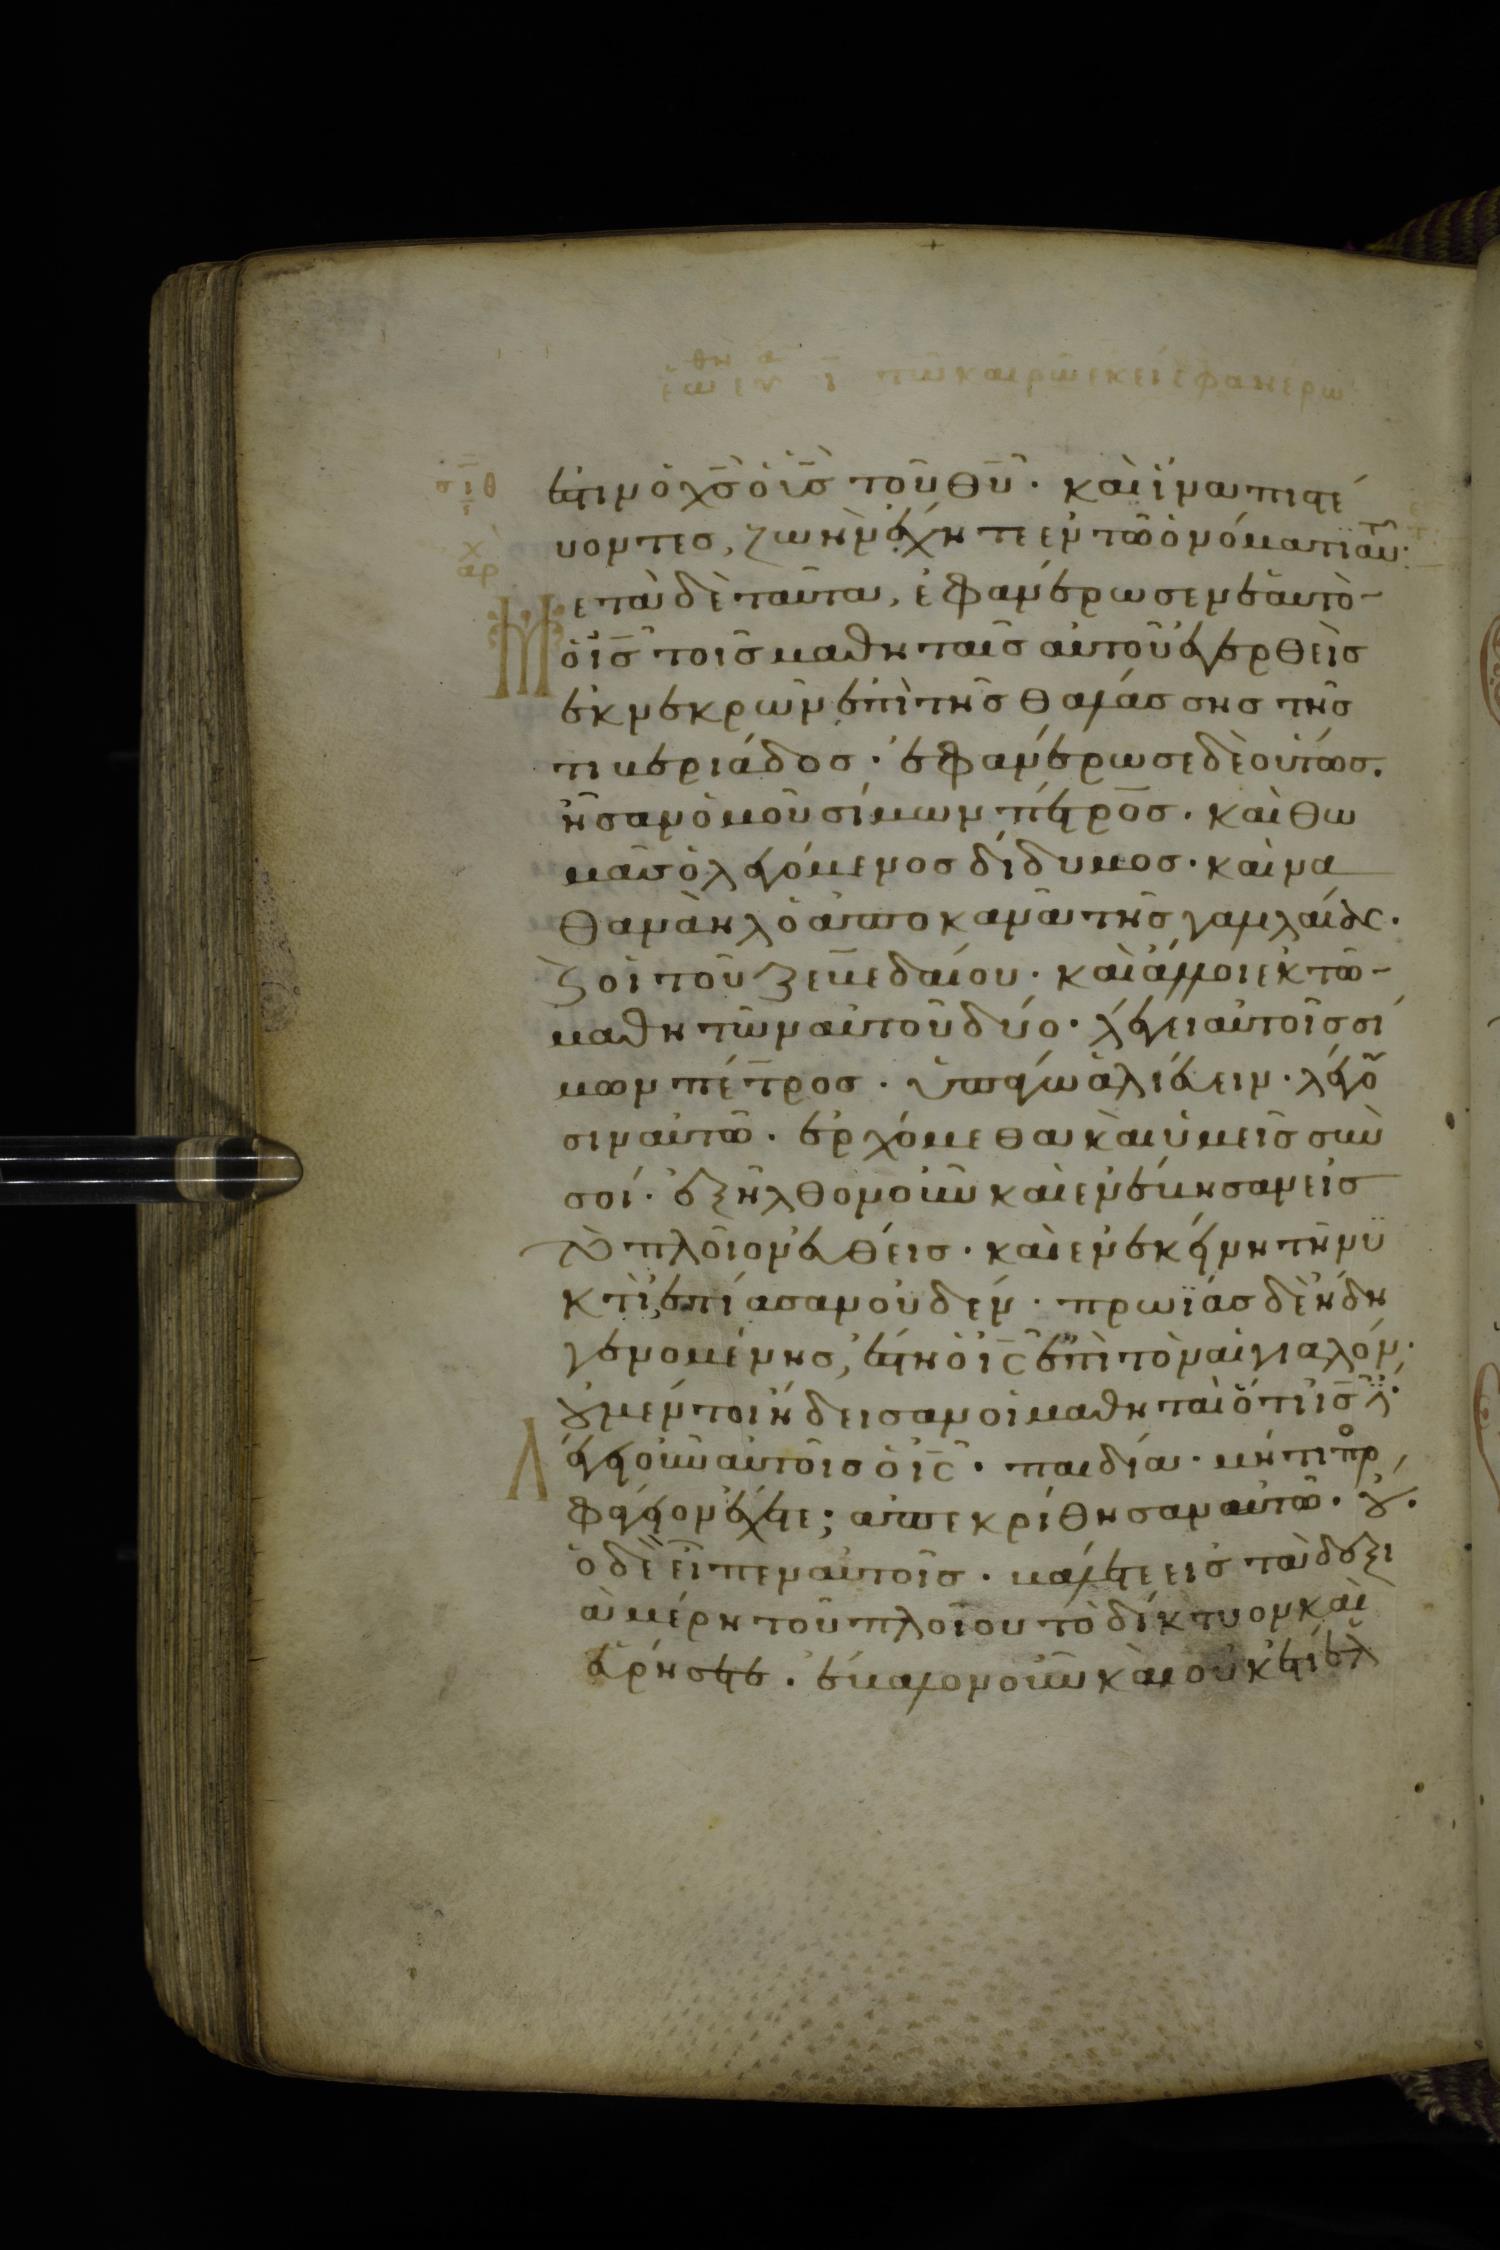 τῶ καιρῶ ἐκεί ἐφανέρω
σιθ
ἐστιν ὁ χς ὁ υς τοῦ θυ· καὶ ἵνα πιστέ
υοντες, ζωὴν ἔχητε ἐν τῶ ὀνόματι αὐτοῦ·
Μετὰ δὲ ταῦτα, ἐφανέρωσεν ἑαυτὸ-
ὁ ις τοῖς μαθηταῖς αὐτοῦ ἐγερθεὶς
ἐκ νεκρῶν ἐπὶ τῆς θαλάσσης τῆς
τιβεριάδος· ἐφανέρωσε δὲ οὕτως.
ἦσαν ὁμοῦ σίμων πέτρος· καὶ θω
μᾶς ὁ λεγόμενος δίδυμος· καὶ να
θαναὴλ ὁ ἀπὸ κανᾶ τῆς γαλιλαίας·
καὶ οἱ τοῦ ζεβεδαίου· καὶ ἄλλοι ἐκ τῶ-
μαθητῶν αὐτοῦ δύο· λέγει αὐτοῖς σί
μων πέτρος· ὑπάγω ἁλιεύειν· λέγου
σιν αὐτῶ· ἐρχόμεθα καὶ ἡμεῖς σὺν
σοί· ἐξῆλθον οὖν καὶ ἐνέβησαν εἰς
τὸ πλοῖον εὐθέις· καὶ ἐν ἐκείνη τῆ νυ
κτὶ, ἐπίασαν οὐδέν· πρωΐας δὲ ἤδη
γενομένης, ἔστη ὁ ις ἐπὶ τὸν αἰγιαλόν·
οὐ μέντοι ἤδεισαν οἱ μαθηταὶ ὅτι ις ἐ·
Λέγει οὖν αὐτοῖς ὁ ις· παιδία· μήτι προσ
φάγιον ἔχετε; ἀπεκρίθησαν αὐτῶ· οὔ·
ὁ δὲ εἶπεν αὐτοῖς· βάλετε εἰς τὰ δεξι
ὰ μέρη τοῦ πλοίου τὸ δίκτυον καὶ
εὑρήσετε· ἔβαλον οὖν καὶ οὐκ ἔτι ἑλ